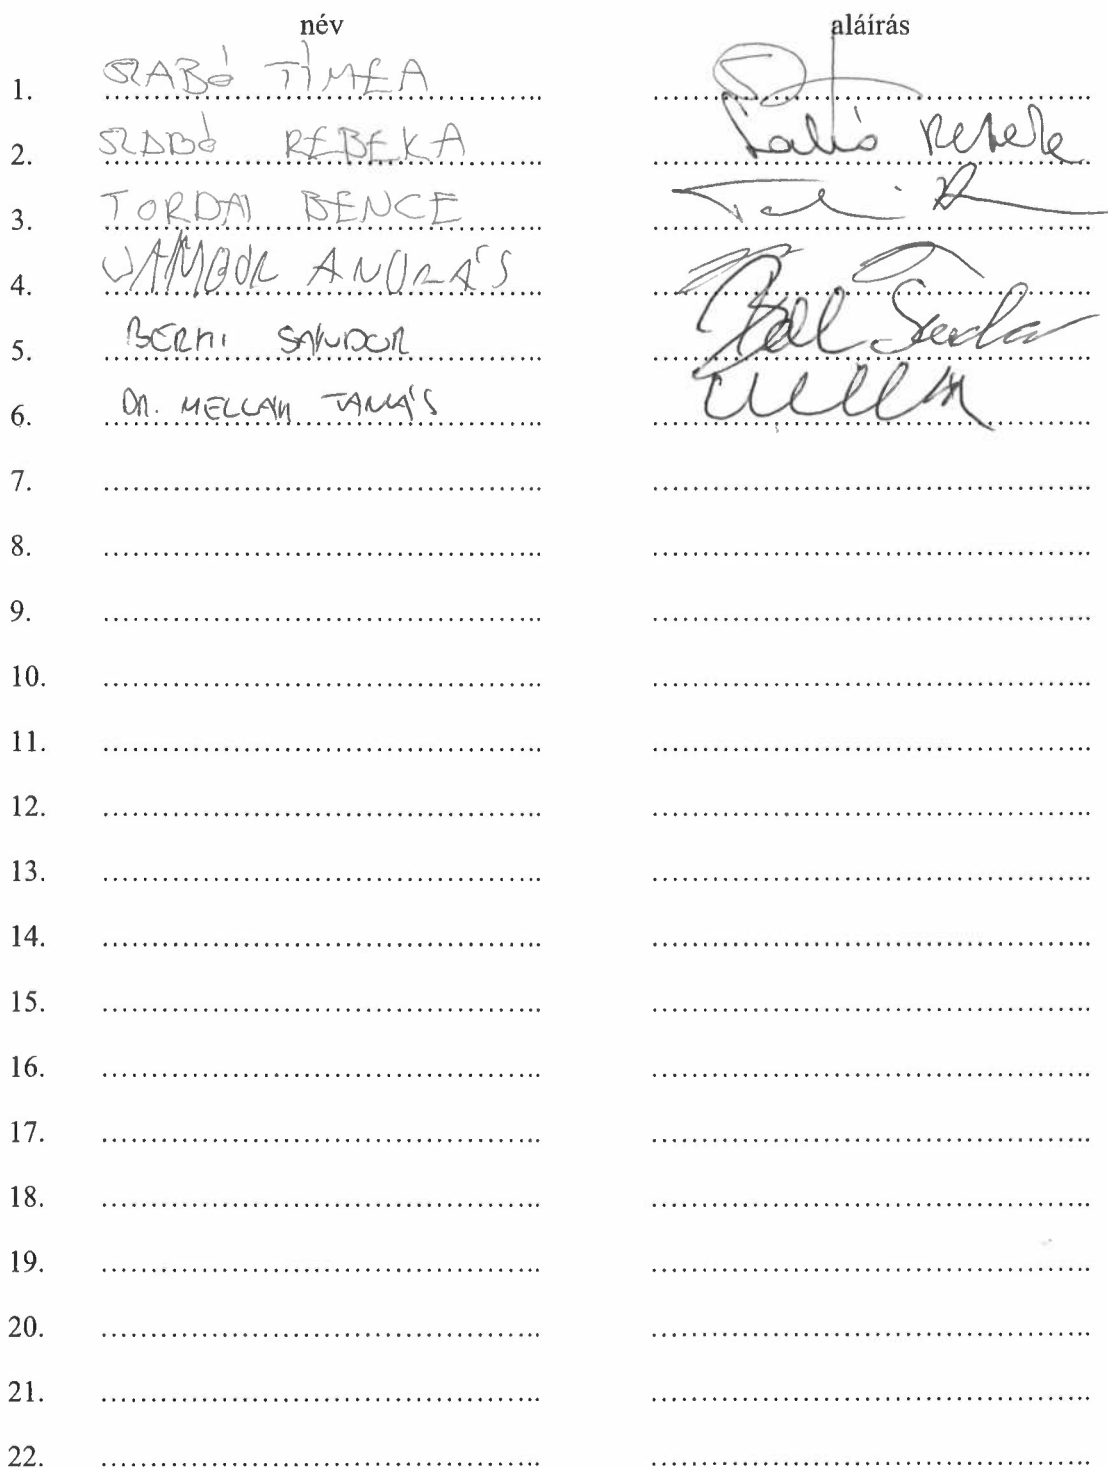 név aláírás
1. SZABÓ TÍMEA
2. SZABÓ REBEKA Szabó Rebeka
3. TORDAI BENCE
4. JÁMBOR ANDRÁS
5. BERKI SÁNDOR
6. DR. MELLÁR TAMÁS
7.
8.
9.
10.
11.
12.
13.
14.
15.
16.
17.
18.
19.
20.
21.
22.